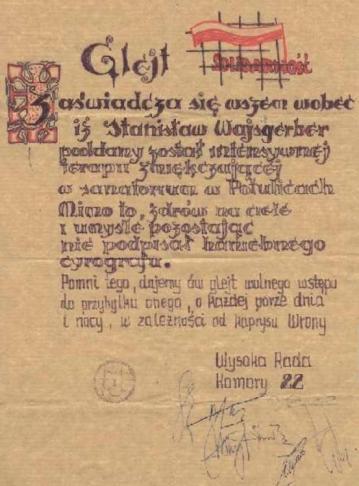 Glejt
SOLIDARNOŚĆ
Zaświadcza się wszem wobec
iż Stanisław Wajsgerber
poddany został intensywnej
terapii zmiękczającej
w sanatorium w Potulicach
Mimo to, zdrów na ciele
i umyśle pozostając
nie podpisał haniebnego
cyrografu.
Pomni tego, dajemy ów glejt wolnego wstępu
do przybytku onego, o każdej porze dnia
i nocy, w zależności od kaprysu Wrony
Wysoka Rada
Komory 22